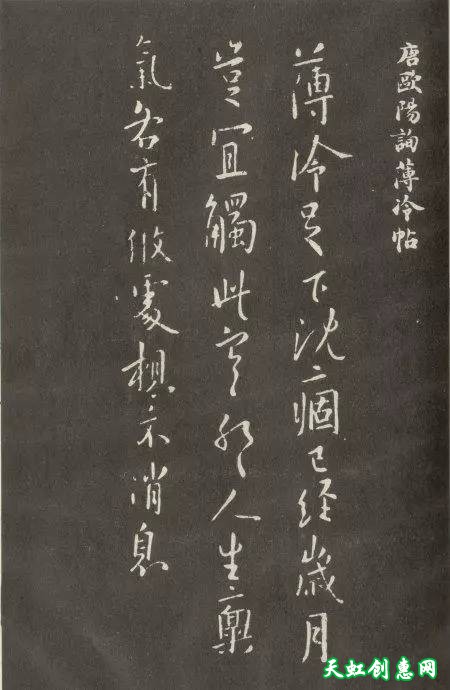 唐歐陽詢薄冷帖
薄冷足下沈痼已經歲月
豈冝觸此寒耶人生稟
氣各有攸處想示消息
天虹创惠网